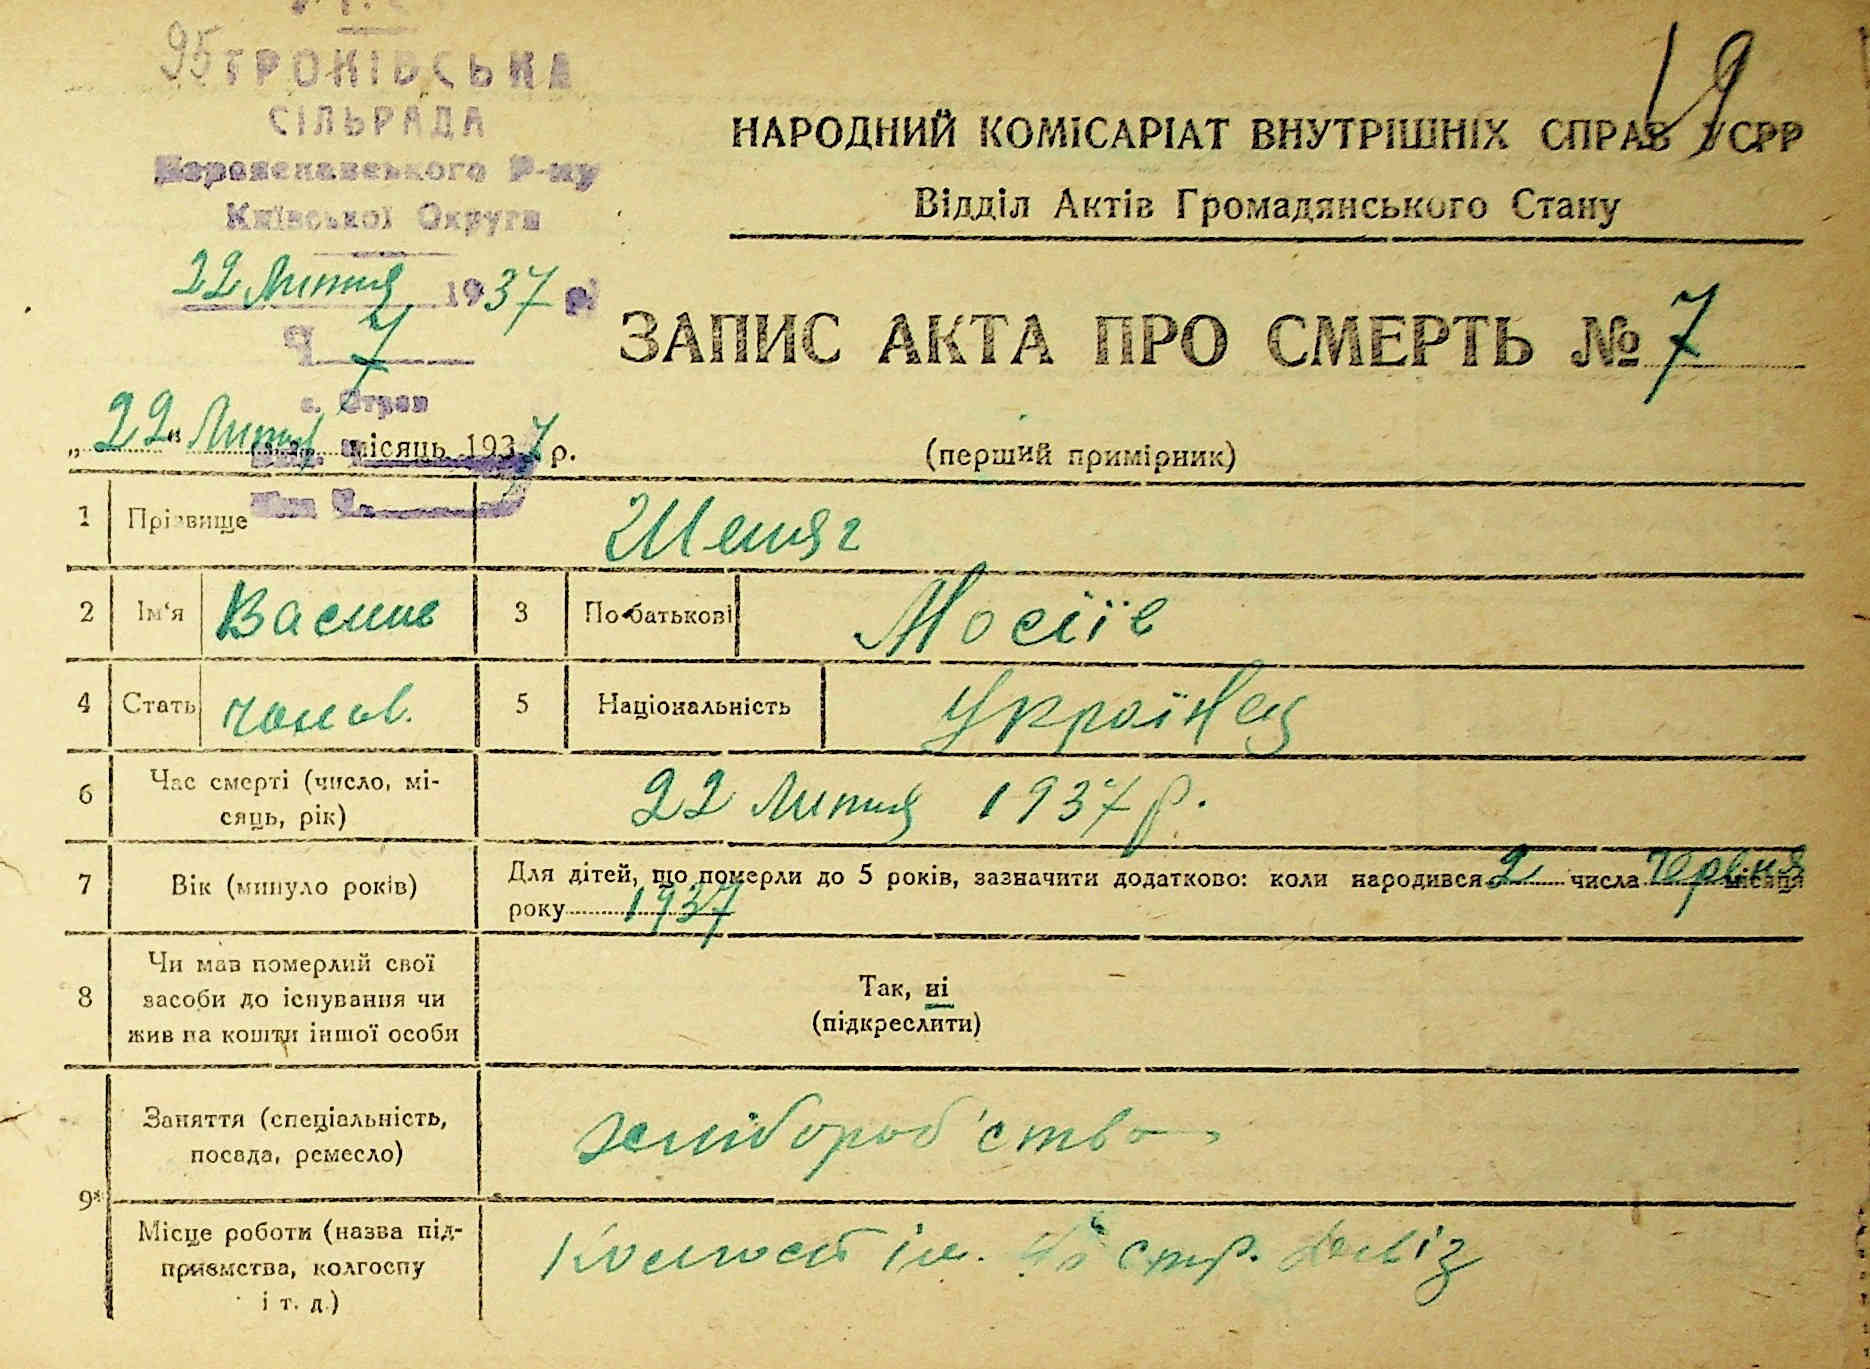 95
19
СІЛЬРАДА
Р-ну
Київської Округи
22 Липня 1937 р.
Ч 7
НАРОДНИЙ КОМІСАРІАТ ВНУТРІШНІХ СПРАВ УСРР
Відділ Актів Громадянського Стану
ЗАПИС АКТА ПРО СМЕРТЬ № 7
(перший примірник)
„22" Липня місяць 1937 р.
1 Прізвище
2 Ім'я Василь 3 По-батькові Мосіїв
4 Стать чолов. 5 Національність Українец
6 Час смерті (число, мі-
сяць, рік) 22 Липня 1937 р.
7 Вік (минуло років) Для дітей, що померли до 5 років, зазначити додатково: коли народився 2 числа Червня місяця
року 1937
8 Чи мав померлий свої
засоби до існування чи
жив на кошти іншої особи
Так, ні
(підкреслити)
9* Заняття (спеціальність,
посада, ремесло) хліборобство
Місце роботи (назва під-
приємства, колгоспу
і т. д.)
ім.